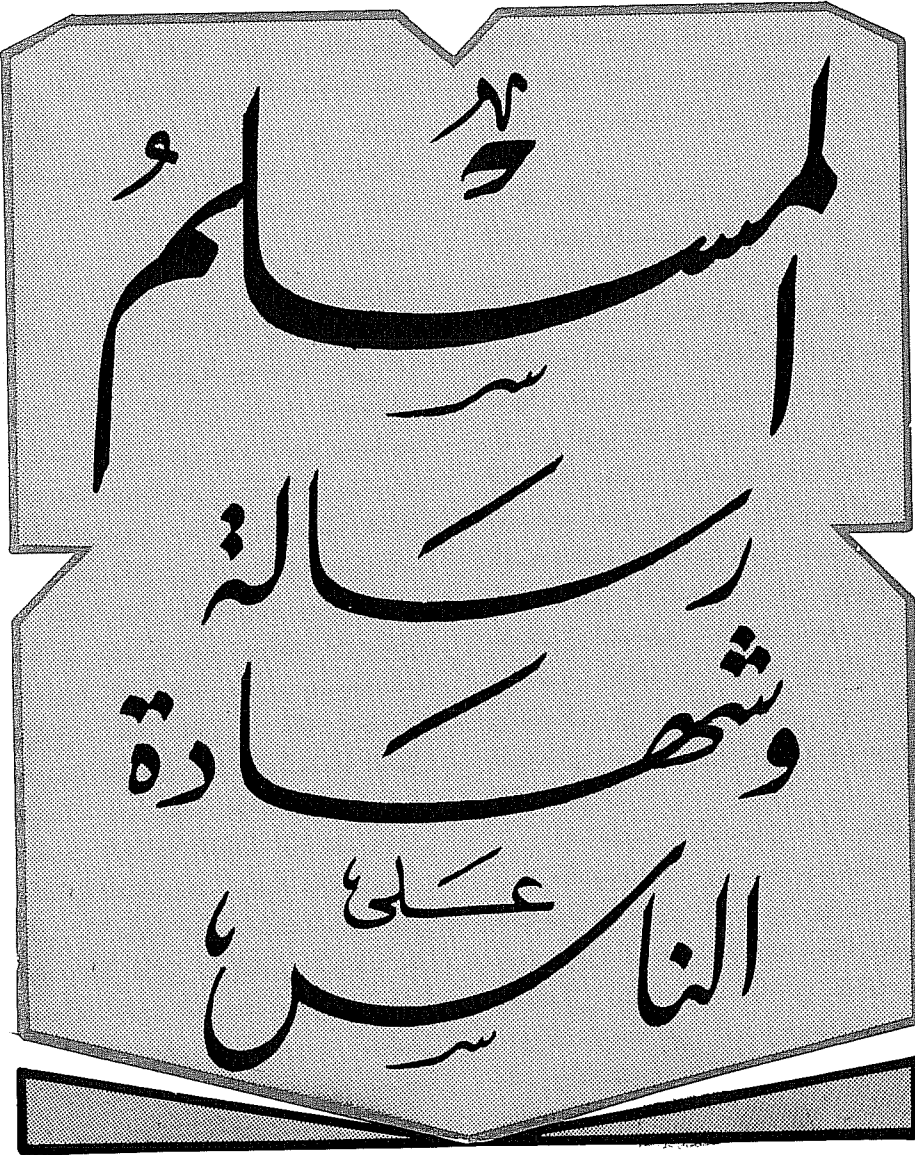 المسلمُ
رسَالة
وشهَادة
عَلى
الناسِ